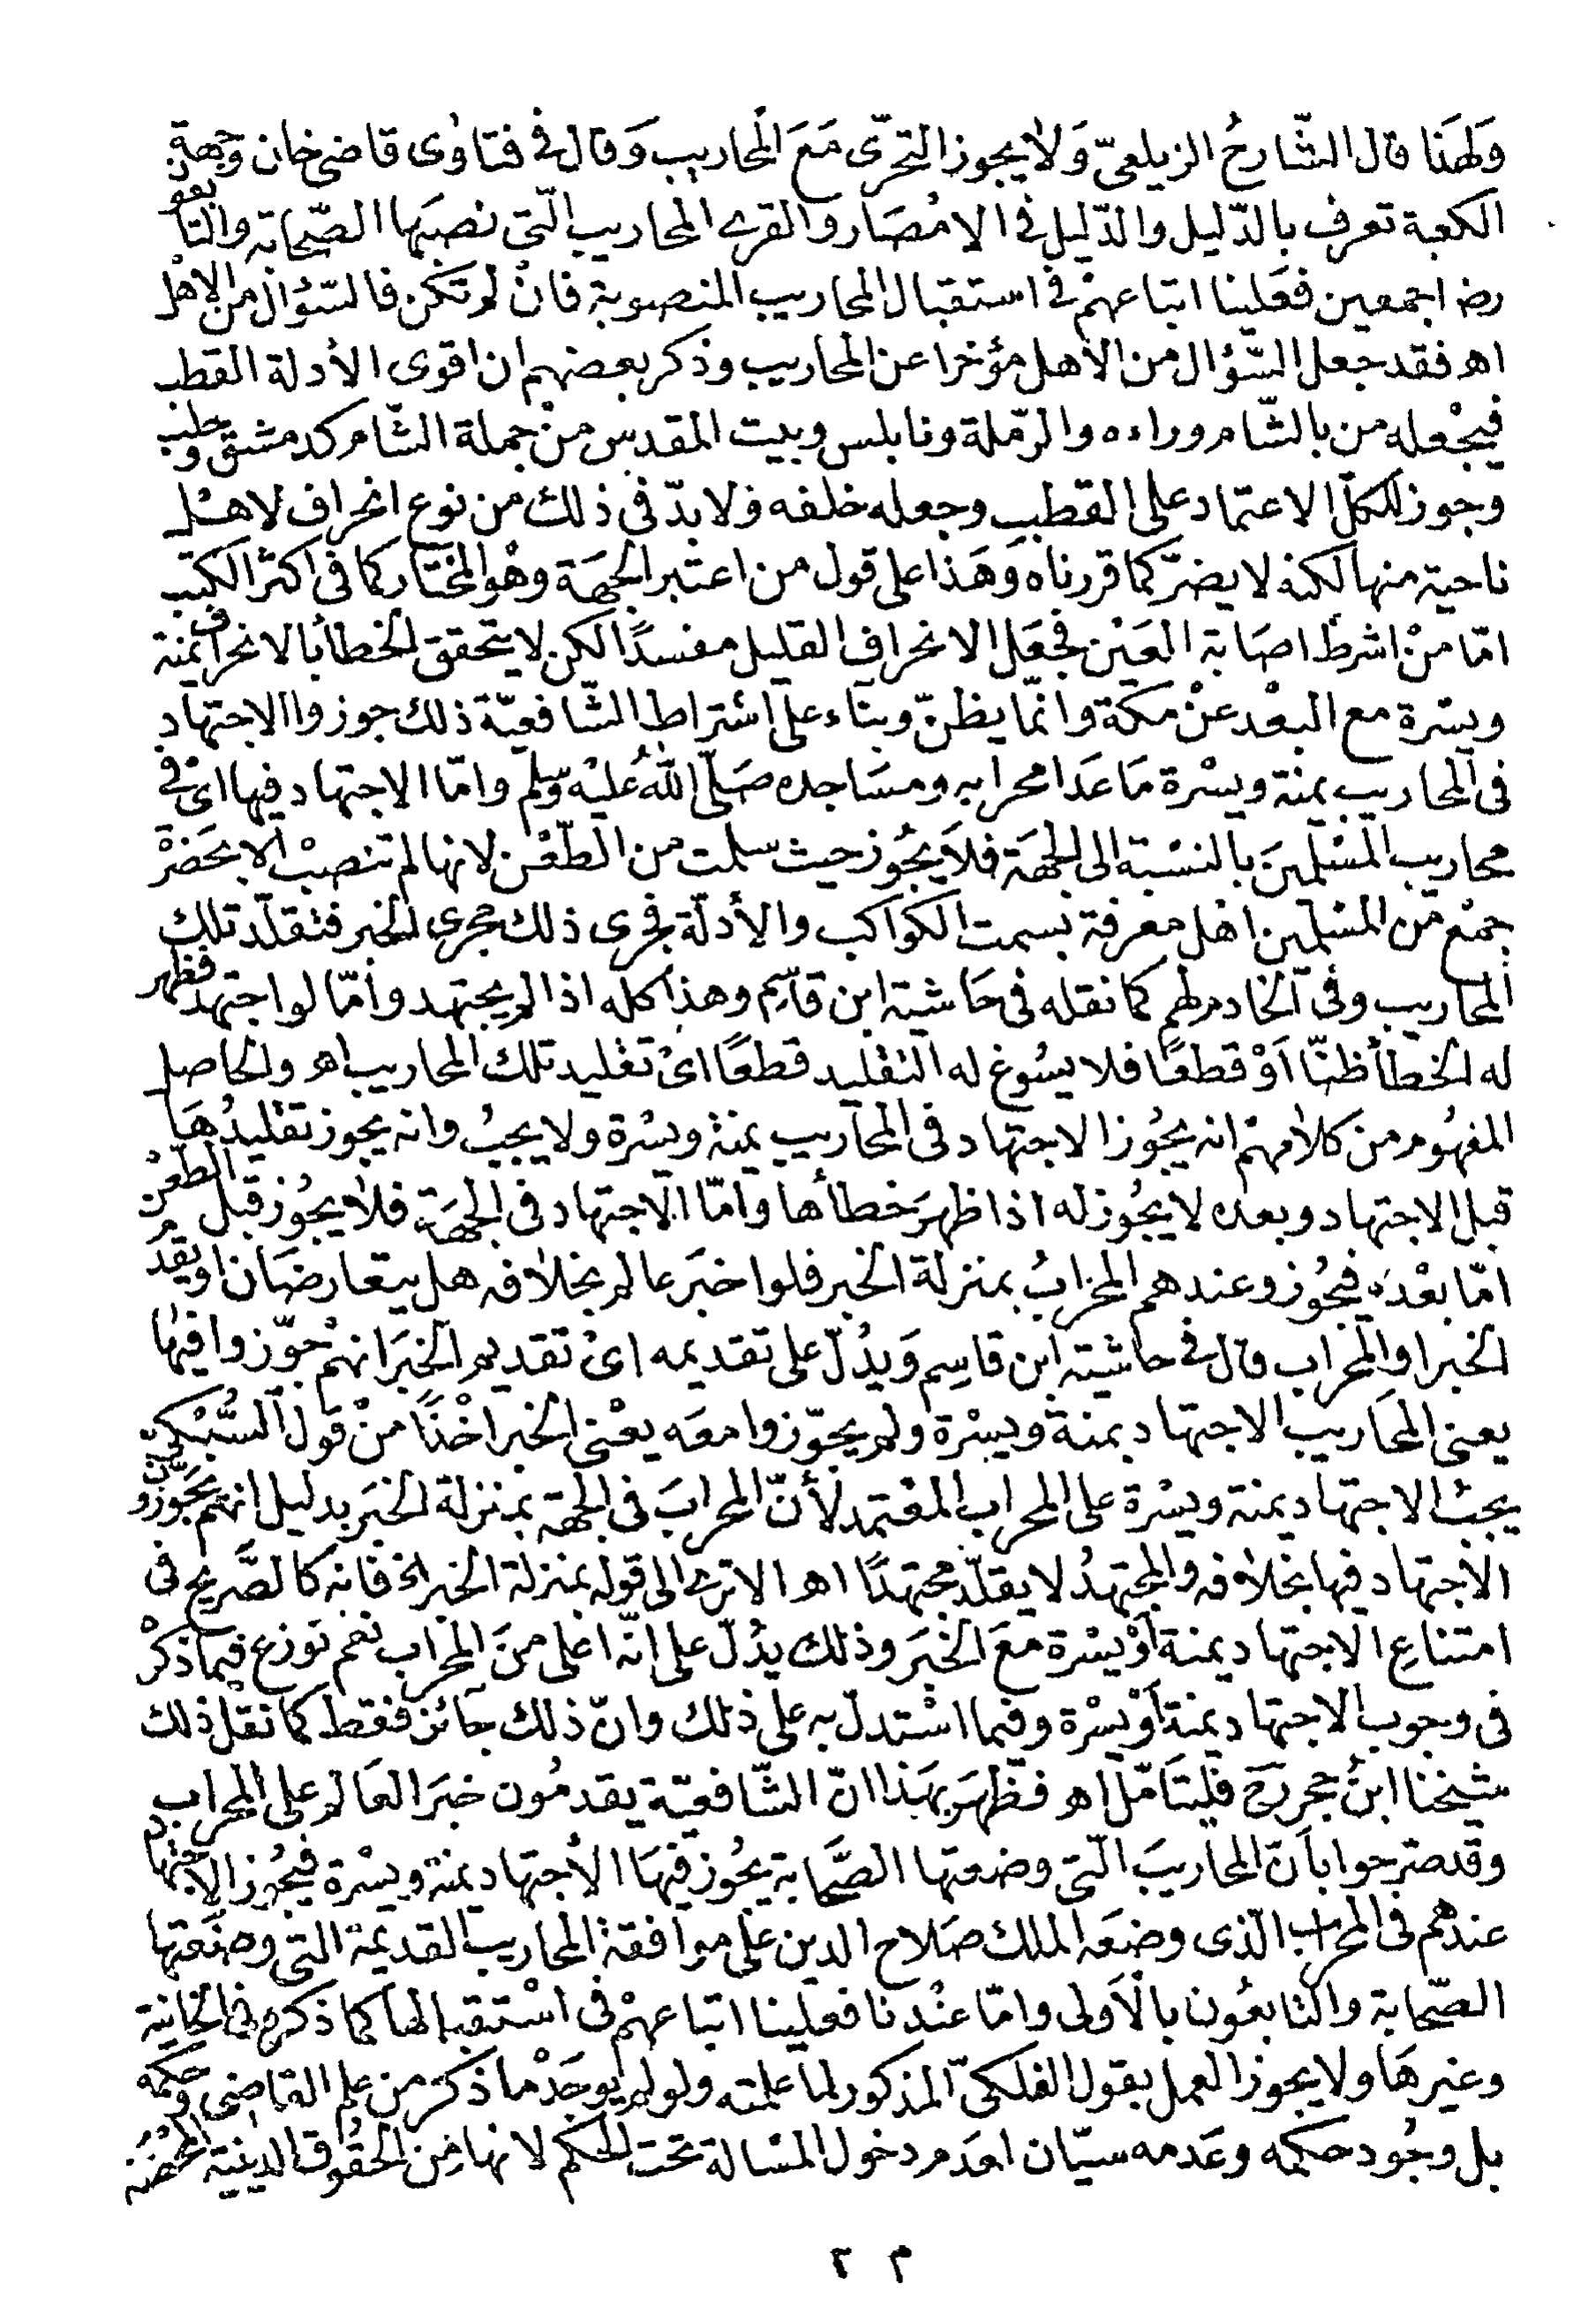 وَلهَذا قال الشّارحُ الزيلعىّ وَلا يجوز التحرّى مَعَ الَمحاريب وَقال فى فتاوٰى قاضى خان وَجهة
الكعبة تعرف بالدّليل والدّليل فى الامْصَار والقرى المحاريب الّتى نصبَها الصّحابة والتابعو
رضہ اجمعين فعَلينا اتباعهمْ فى استقبال المحاريب المنصوبة فانْ لم تكن فالسّؤال من الاهل
اهـ فقد جعل السّؤال من الأهل مؤخرا عن المحاريب وذكر بعضهم ان اقوى الأدلة القطب
فيجْعله من بالشّام وراءه والرّملة ونابلس وبيت المقدس منْ جملة الشّام كدمشق وحلب
وجوز للكلّ الاعتماد على القطب وجعله خلفه ولا بدّ فى ذلك من نوع انحراف لاهل
ناحية منها لكنه لا يضرّ كما قررناه وَهَذا على قول من اعتبر الجهَة وهْو المختار كما فى اكثر الكتب
امّا منْ اشرط اصَابة العَيْن فجَعَل الانحراف القليل مفسدًا لكن لا يتحقق الخطأ بالانحراف يمنة
ويسْرة مع البعْد عنْ مكة وانّما يظنّ وبناء على اشتراط الشّافعيّة ذلك جوزوا الاجتهاد
فى المحاريب يمنة ويسْرة مَا عَدا محرابه ومسَاجده صَلّى اللهُ عليْه وسّلم وامّا الاجتهاد فيها اىْ فى
محاريب المسْلمينَ بالنسْبة الى الجهَة فلَا يجُوز حيث سلمت من الطّعْن لانها لم تنصبْ الا بحَضرْ
جمْع من المسْلمين اهْل معرفة بسمت الكواكب والأدلّة فجرى ذلك مجرى الخبر فنقلّد تلك
المحاريب وفى الخادم لهم كما نقله فى حَاشية ابن قاسِم وهذا كله اذا لم يجتهد وأمّا لو اجتهد فظهر
له الخطأ ظنّا اَوْ قطعًا فلا يسُوغ له التقليد قطعًا اىْ تقليد تلك المحاريب اهـ والحاصل
المفهُوم من كلامهمْ انه يجُوز الاجتهاد فى المحاريب يمنة ويسْرة ولا يجبُ وانه يجوز تقليدُهَا
قبل الاجتهاد وبعده لا يجُوز له اذا ظهرَ خطأها وامّا الاجتهاد فى الجهَة فلا يجُوز قبل الطّعْن
امّا بعْدَه فيجُوز وعندهم المحرابُ بمنزلة الخبر فلو اخبَر عالم بخلافه هل يتعارضَان او يقدم
الخبر او المحراب قال فى حاشية ابن قاسِم وَيدُلّ على تقديمه اىْ تقديم الخبَر انهمْ جوّزوا فيها
يعنى المحَاريب الاجتهاد يمنة ويسْرة ولم يجوّزوا معَه يعْنى الخبر اخْذًا منْ قول السُّبْكىّ
يجبُ الاجتهاد يمنة ويسْرة على المحراب المعْتمد لأنّ المحرابَ فى الجهة بمنزلة الخبَر بدليل انهم يجَوّزون
الاجتهاد فيها بخلافه والمجتهدُ لا يقلّد مجتهدًا اهـ الا ترى الى قوله بمنزلة الخبر الخ فانه كالصَّريح فى
امتناعِ الاجتهاد يمنة أوْ يسْرة معَ الخبَر وذلك يدُلّ على انّه اعلى منَ المحراب نعم نوزع فيما ذكرْ
فى وجوب الاجتهاد يمنة أوْ يسْرة وفيما اسْتدلّ به على ذلك وانّ ذلك جائز فقط كما نقل ذلك
شيخنا ابنُ حجر رح فليتَأمّل اهـ فظهَر بهَذا انّ الشّافعيّة يقدمُون خبَر العَالم على المحراب
وقد صرّحوا بأنّ المحاريبَ الّتى وضعتها الصَّحابة يجُوز فيهَا الاجتهاد يمنة ويسْرة فيجُوز الاجتهاد
عندهم فى المحراب الّذى وضعَه الملك صَلاح الدين علٰى موافقة المحاريب القديمة التى وضَعَتها
الصّحابة والتابعُون بالَاولى وامّا عنْدنا فعلينا اتباعهمْ فى اسْتقبالها كما ذكره فى الخانية
وغيرهَا ولا يجوز العمل بقول الفلكىّ المذكور لما علمته ولو لم يوجَدْ ما ذكرَ من علم القاضى وحكمه
بل وجُود حكمه وعَدمه سيّان لعَدم دخول المسْالة تحت الحكم لانها مِن الحقُوق الدينية المحْضَة
م ٢